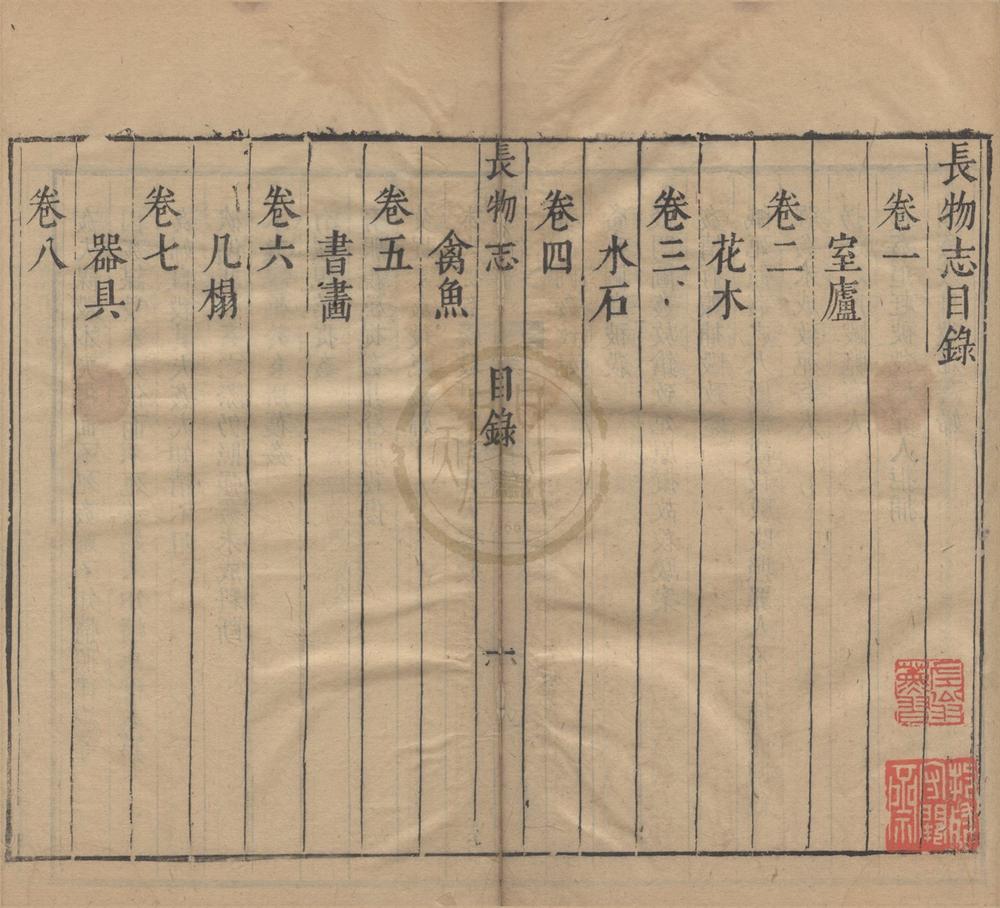 長物志目錄
卷一
室廬
卷二
花木
卷三
水石
卷四
長物志 目錄 六
禽魚
卷五
書畫
卷六
几榻
卷七
器具
卷八